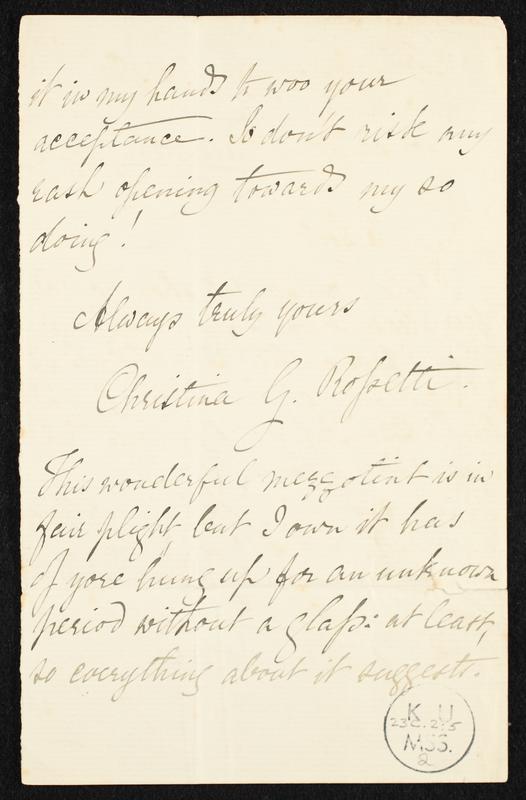 it in my hands to woo your
acceptance. So don't risk any
rash opening towards my so
doing!
Always truly yours
Christina G. Roſsetti.
This wonderful mezzotint is in
fair plight, but I own it has
of yore hung up for an unknown
period without a glaſs: at least,
so everything about it suggests.
K U
23C.2:5
MSS.
2